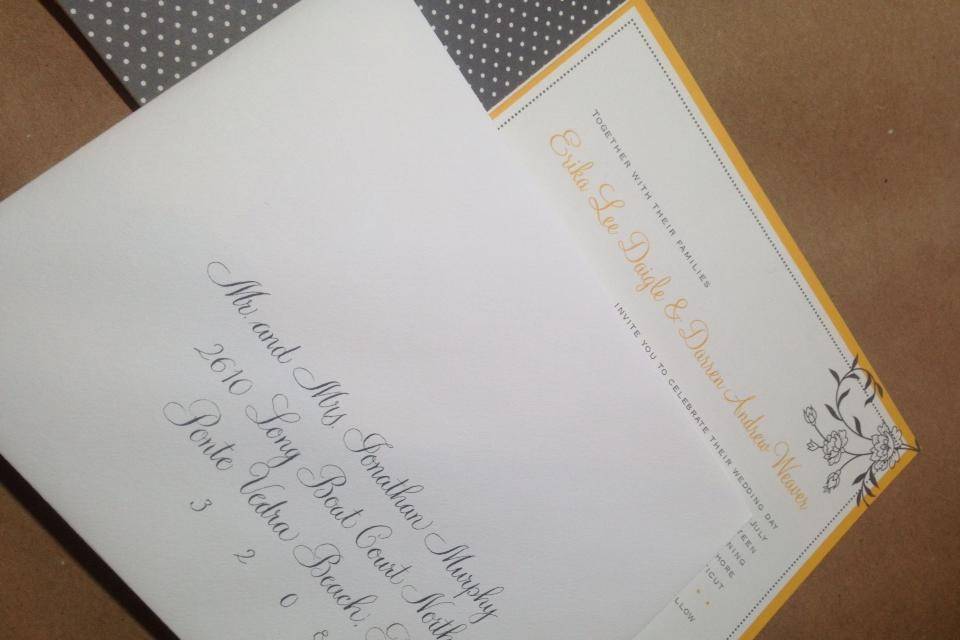 Mr. and Mrs. Jonathan Murphy
2610 Long Boat Court North
Ponte Vedra Beach,
3 2 0
TOGETHER WITH THEIR FAMILIES
Erika Lee Daigle & Darren Andrew Weaver
INVITE YOU TO CELEBRATE THEIR WEDDING DAY
JULY